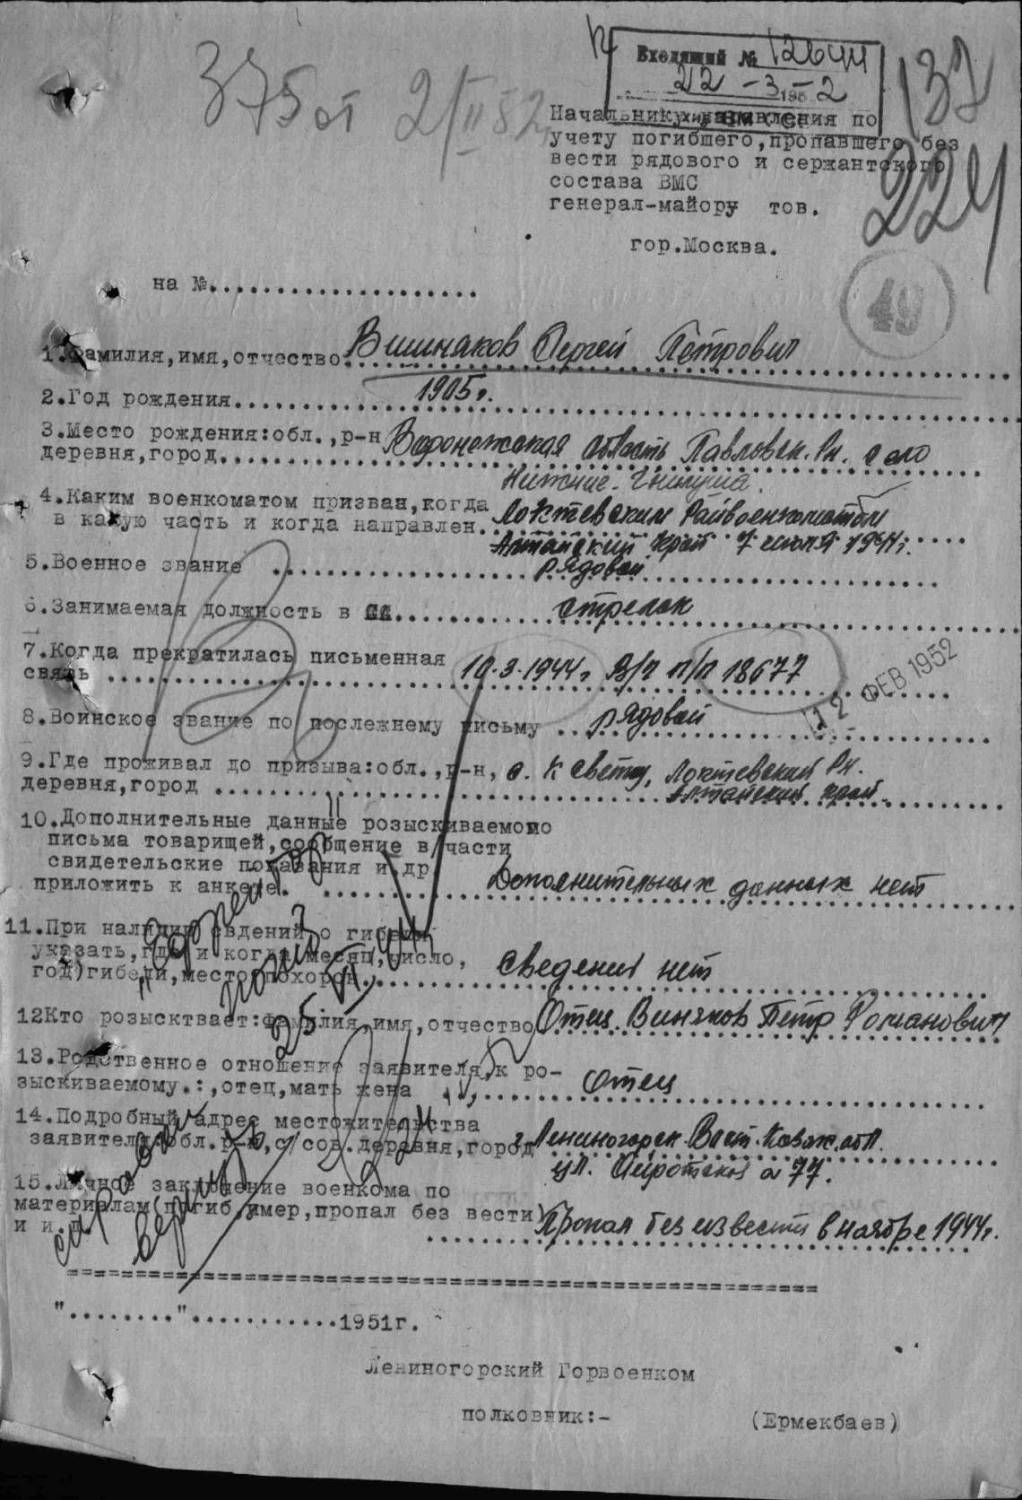 Входящий № 12644
22 -3- 1952
137
375 от 2/II 52
Начальнику управления по
учету погибшего,пропавшего без
вести рядового и сержантского
состава ВМС
генерал-майору тов.
224
гор.Москва.
49
на №....................
1.Фамилия,имя,отчество Вишняков Сергей Петрович
2.Год рождения 1905г.
3.Место рождения:обл.,р-н Воронежская область Павловск. Рн. село
деревня,город Нижние-Гнилуша.
4.Каким военкоматом призван,когда Локтевским Райвоенкоматом
в какую часть и когда направлен. Алтайский край 7 июля 1941г.
5.Военное звание рядовой
6.Занимаемая должность в СА стрелок
7.Когда прекратилась письменная
связь 10.3.1944г. В/ч п/п 18677
12 ФЕВ 1952
8.Воинское звание по послежнему письму рядовой
9.Где проживал до призыва:обл.,р-н, с. К Свету, Локтевский Рн.
деревня,город Алтайский край.
10.Дополнительные данные розыскиваемого
письма товарищей,сообщение в/части
свидетельские показания и др.
приложить к анкете. Дополнительных данных нет
11.При наличии свдений о гибели
указать,где и когда(месяц,число,
год)гибели,место похорон. Сведений нет
12Кто розысктвает:фамилия,имя,отчество Отец Виняков Петр Романович
13.Родственное отношение заявителя,к ро-
зыскиваемому.:,отец,мать жена Отец
14.Подробный адрес местожительства
заявителя:обл.р-н,с/сов.деревня,город г.Лениногорск Вост.Казах.обл.
ул. д 77.
15.Личное заключение военкома по
материалам(погиб,умер,пропал без вести)
и и.д. Пропал без извести в ноябре 1944г.
"........"............1951г.
Лениногорский Горвоенком
полковник:-
(Ермекбаев)